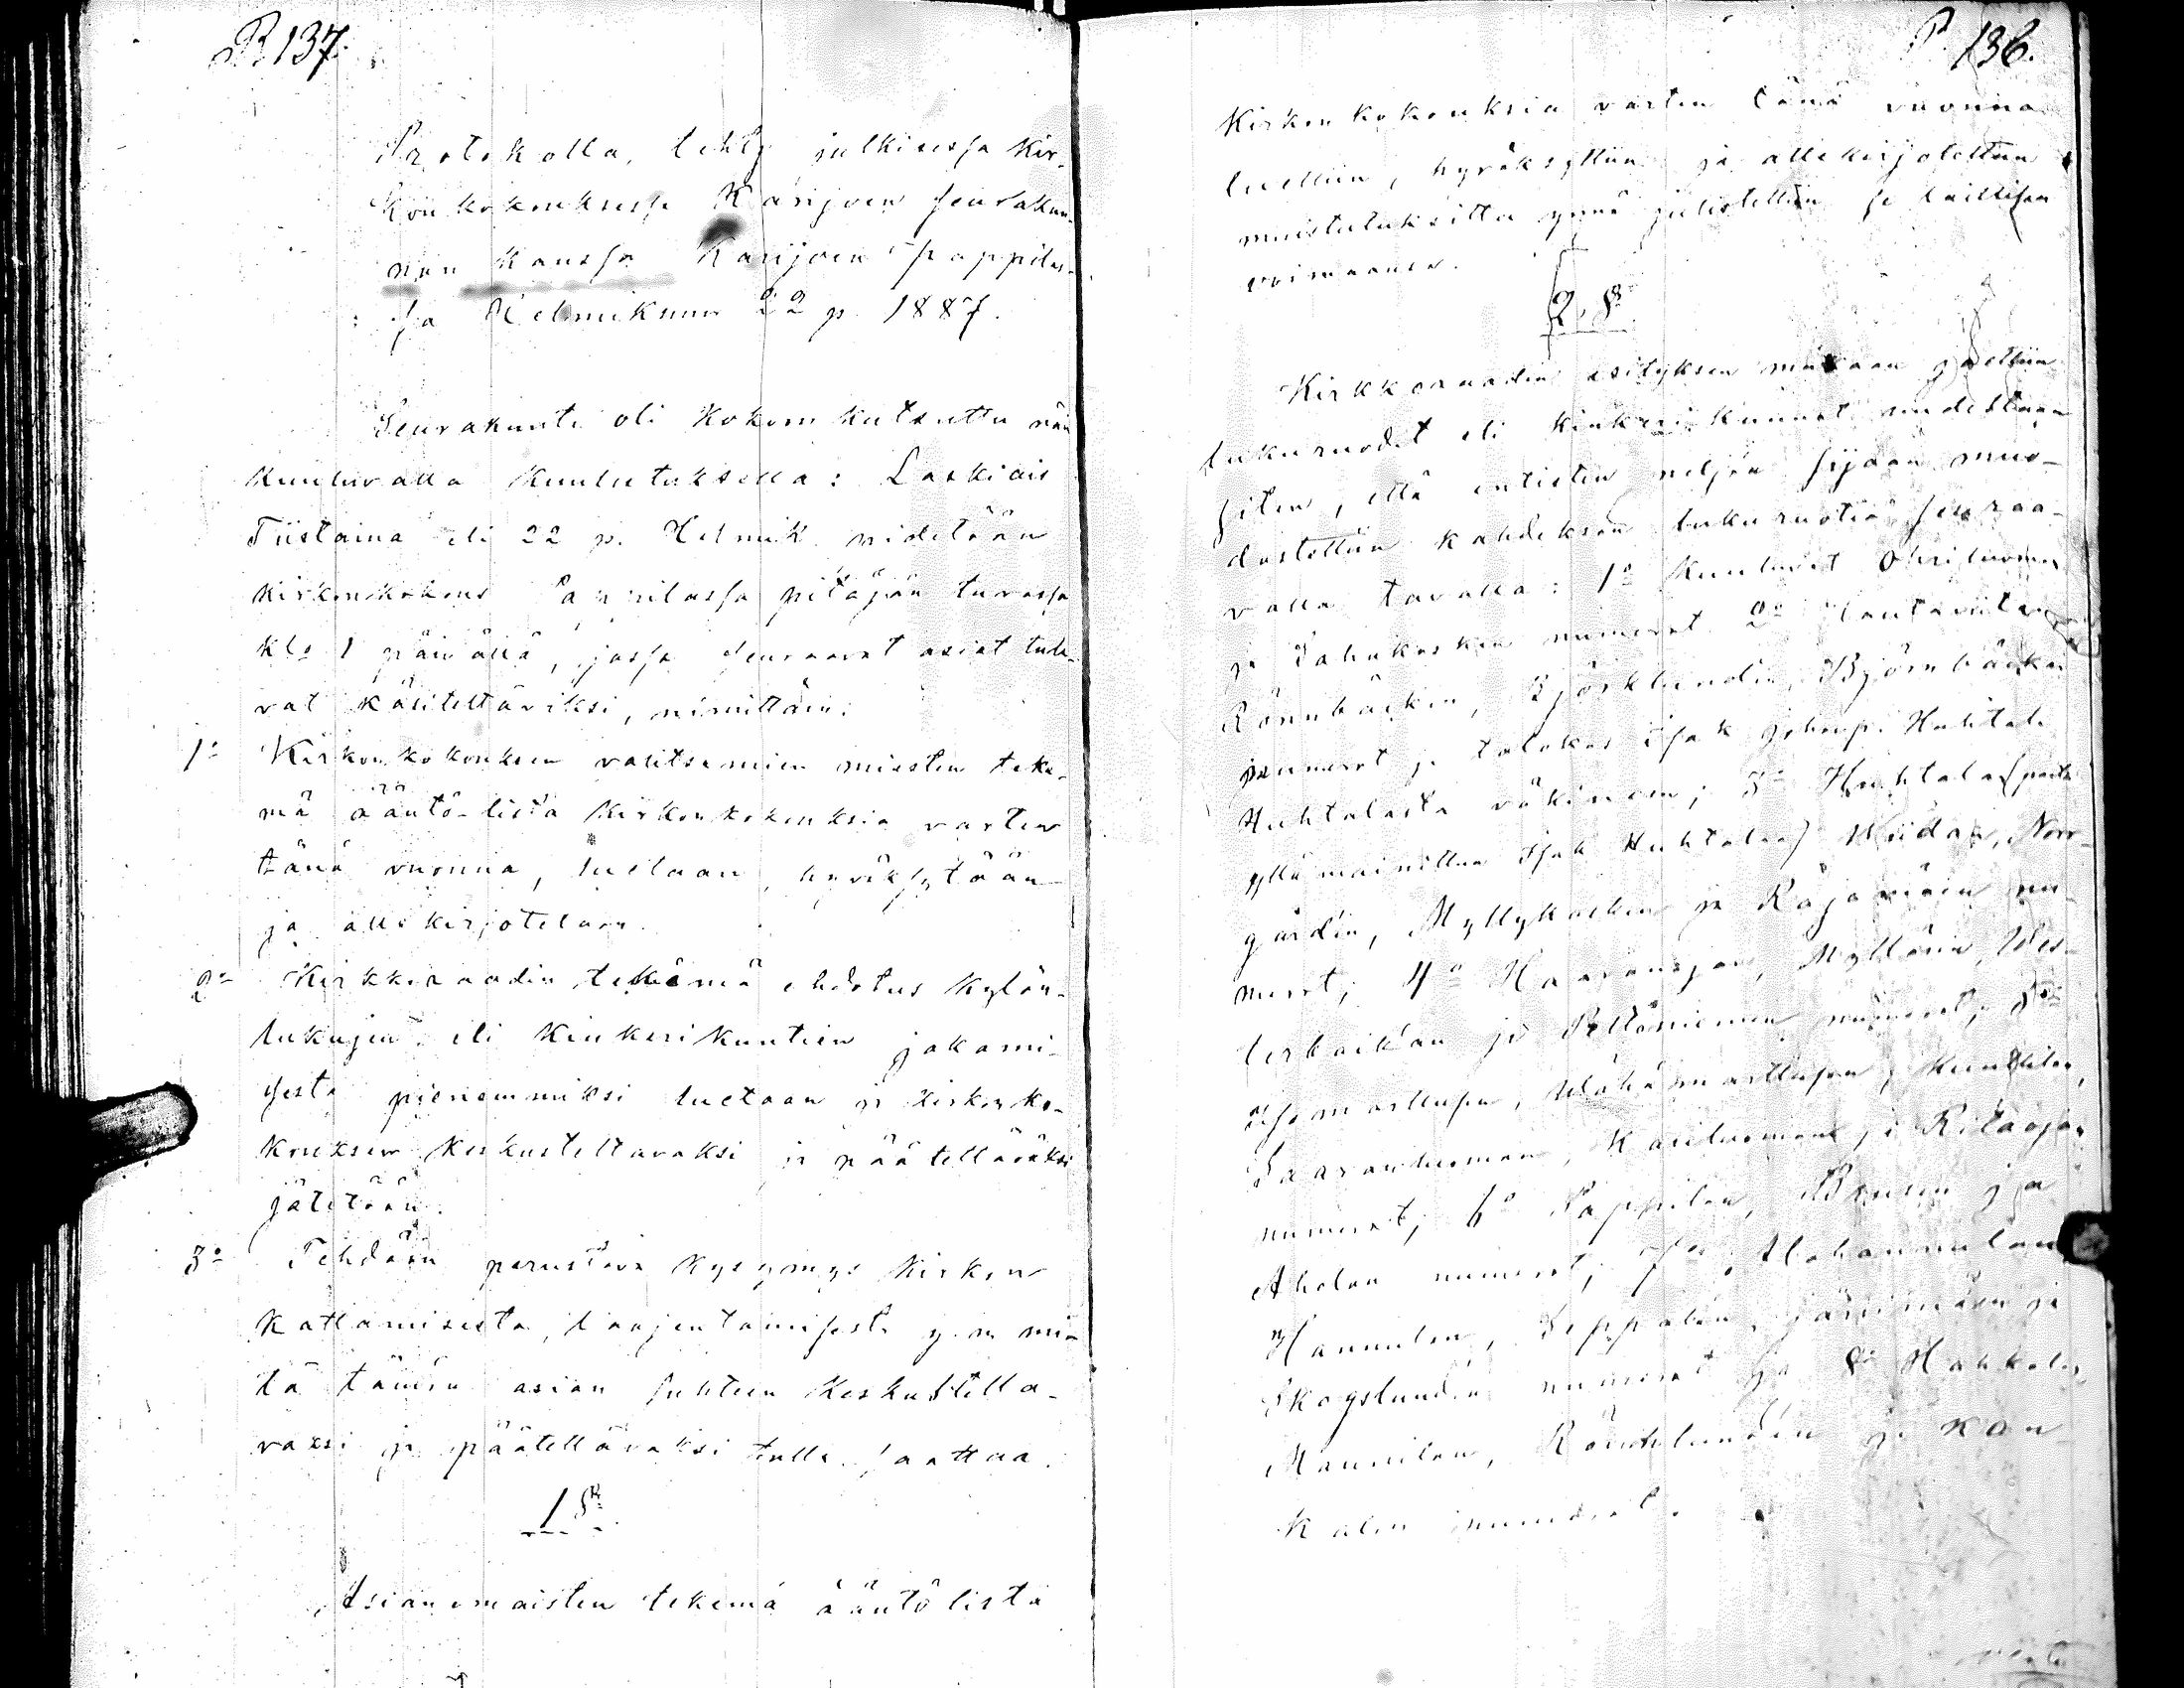 P. 137.
Protokolla, tehty julkisessa Kir-
konkokouksessa Karijoen seurakun-
nan kanssa Karijoen pappilas-
sa Helmikuun 22 p. 1887.
Seurakunta oli Kokoon kutsuttu näin
kuuluvalla kuulutuksella: Laskiais
Tiistaina eli 22 p. Helmik. pidetään
kirkonkokous Pappilassa pitäjän tuvassa
klo 1 päivällä, jossa seuraavat asiat tule-
vat käsiteltäviksi, nimittäin:
1o Kirkonkokouksen valitsemien miesten teke-
mä ääntö-lista kirkonkokouksia varten
tänä vuonna, luetaan, hyväksytään
ja allekirjotetaan.
2o Kirkkoraadin tekämä ehdotus kylän-
lukujen eli Kinkerikuntien jakami-
sesta pienemmiksi luetaan ja kirkonko-
kouksen keskusteltavaksi ja päätellääväksi
jätetään.
3o Tehdään perustava kysymys kirkon
kattamisesta, laajentamisesta y.m. mi-
tä tämän asian suhteen keskustelta-
vaksi ja päätellävaksi tulla saattaa.
1 §.
Asianomaisten tekemä ääntölista
P. 136.
Kirkonkokouksia varten tänä vuonna
luettiin, hyväksyttiin ja allekirjotettiin
muistutuksitta ynnä julistettiin se laillisen
voimaansa.
2 §.
Kirkkoraadin esityksen mukaan jaettiin
lukuruodit eli kinkerikunnat uudestaan
siten, että entisten neljän sijaan muo-
dostettiin kahdeksan lukuruotia seuraa-
valla tavalla: 1o Kuuluvat Ohriluoman
ja Sahakosken numerot 2o
Rönnbäckin, Björklundin, Björnbäckin
numerot ja talokas Isak Huhtala
Huhtalasta väkineen; 3o Huhtala (paitsi
yllä mainittua Isak Huhtalaa) Wiidan, Norr-
gårdin, Myllykosken ja Rajamäen nu-
merot; 4o Haaranojan, Myllärin, Wes-
terbackan ja Peltoniemen numerot; 5o
Isomarttusen, Wähämarttusen, Kuuttilan,
Saaranluoman, Kariluoman ja Ritaojan
numerot; 6o Pappilan, ja
Aholan numerot; 7o Alahannulan
Hannulan, Seppälän, Järvimäen ja
Skogslundin numerot ja 8o Hahkolan
Mannilan, Röndlundin ja Kan
kalon numerot.